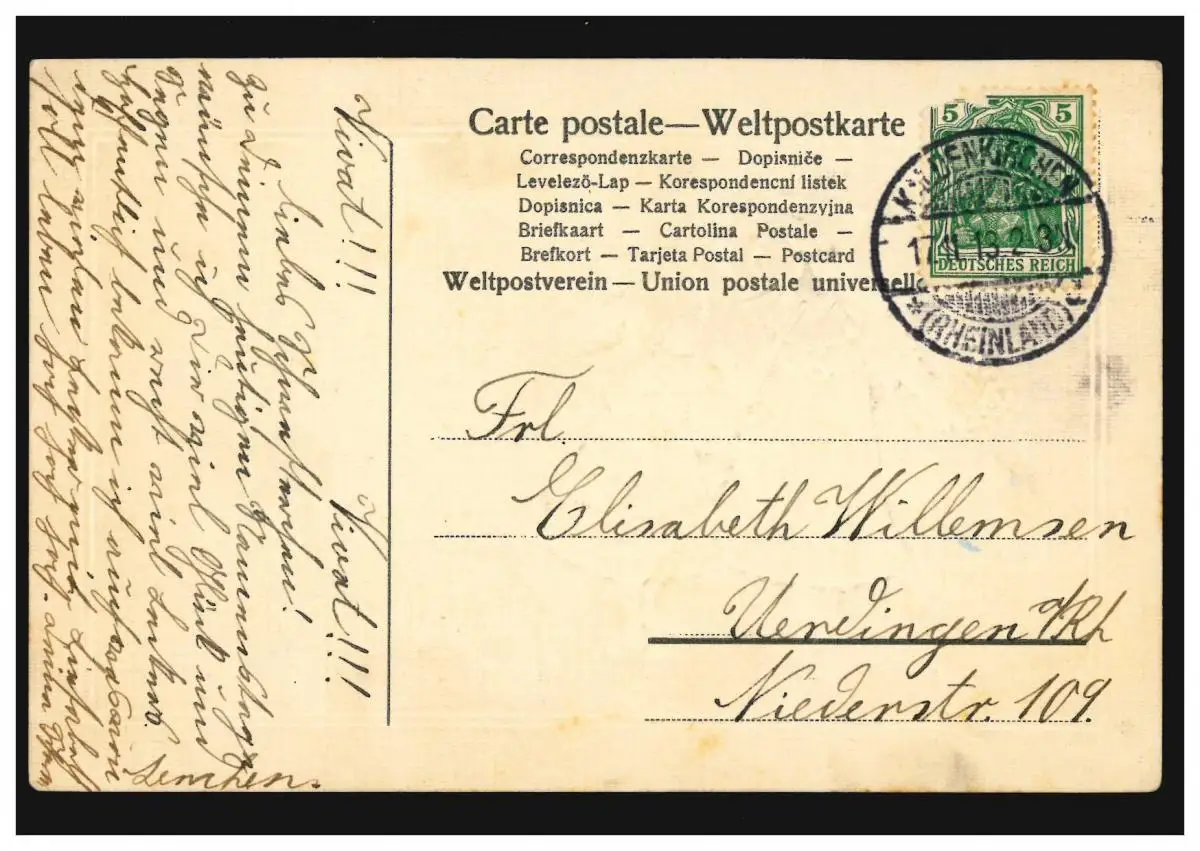 Carte postale—Weltpostkarte
Correspondenzkarte — Dopisniče —
Levelező-Lap — Korespondencní listek
Dopisnica — Karta Korespondenzyjna
Briefkaart — Cartolina Postale —
Brefkort — Tarjeta Postal — Postcard
Weltpostverein — Union postale universelle
5 5
DEUTSCHES REICH
KALDENKIRCHEN
17.11.13.2-3
(RHEINLAND)
Frl.
Elisabeth Willemsen
Uerdingen a/Rh
Niederstr. 109.
Vivat!!! Vivat!!!
Liebes
zu Deinem heutigen Namenstage
wünsche ich Dir viel Glück und
Segen und recht viel
Hoffentlich bekomm ich auch
soll leben hoch hoch hoch.
Lenchen.